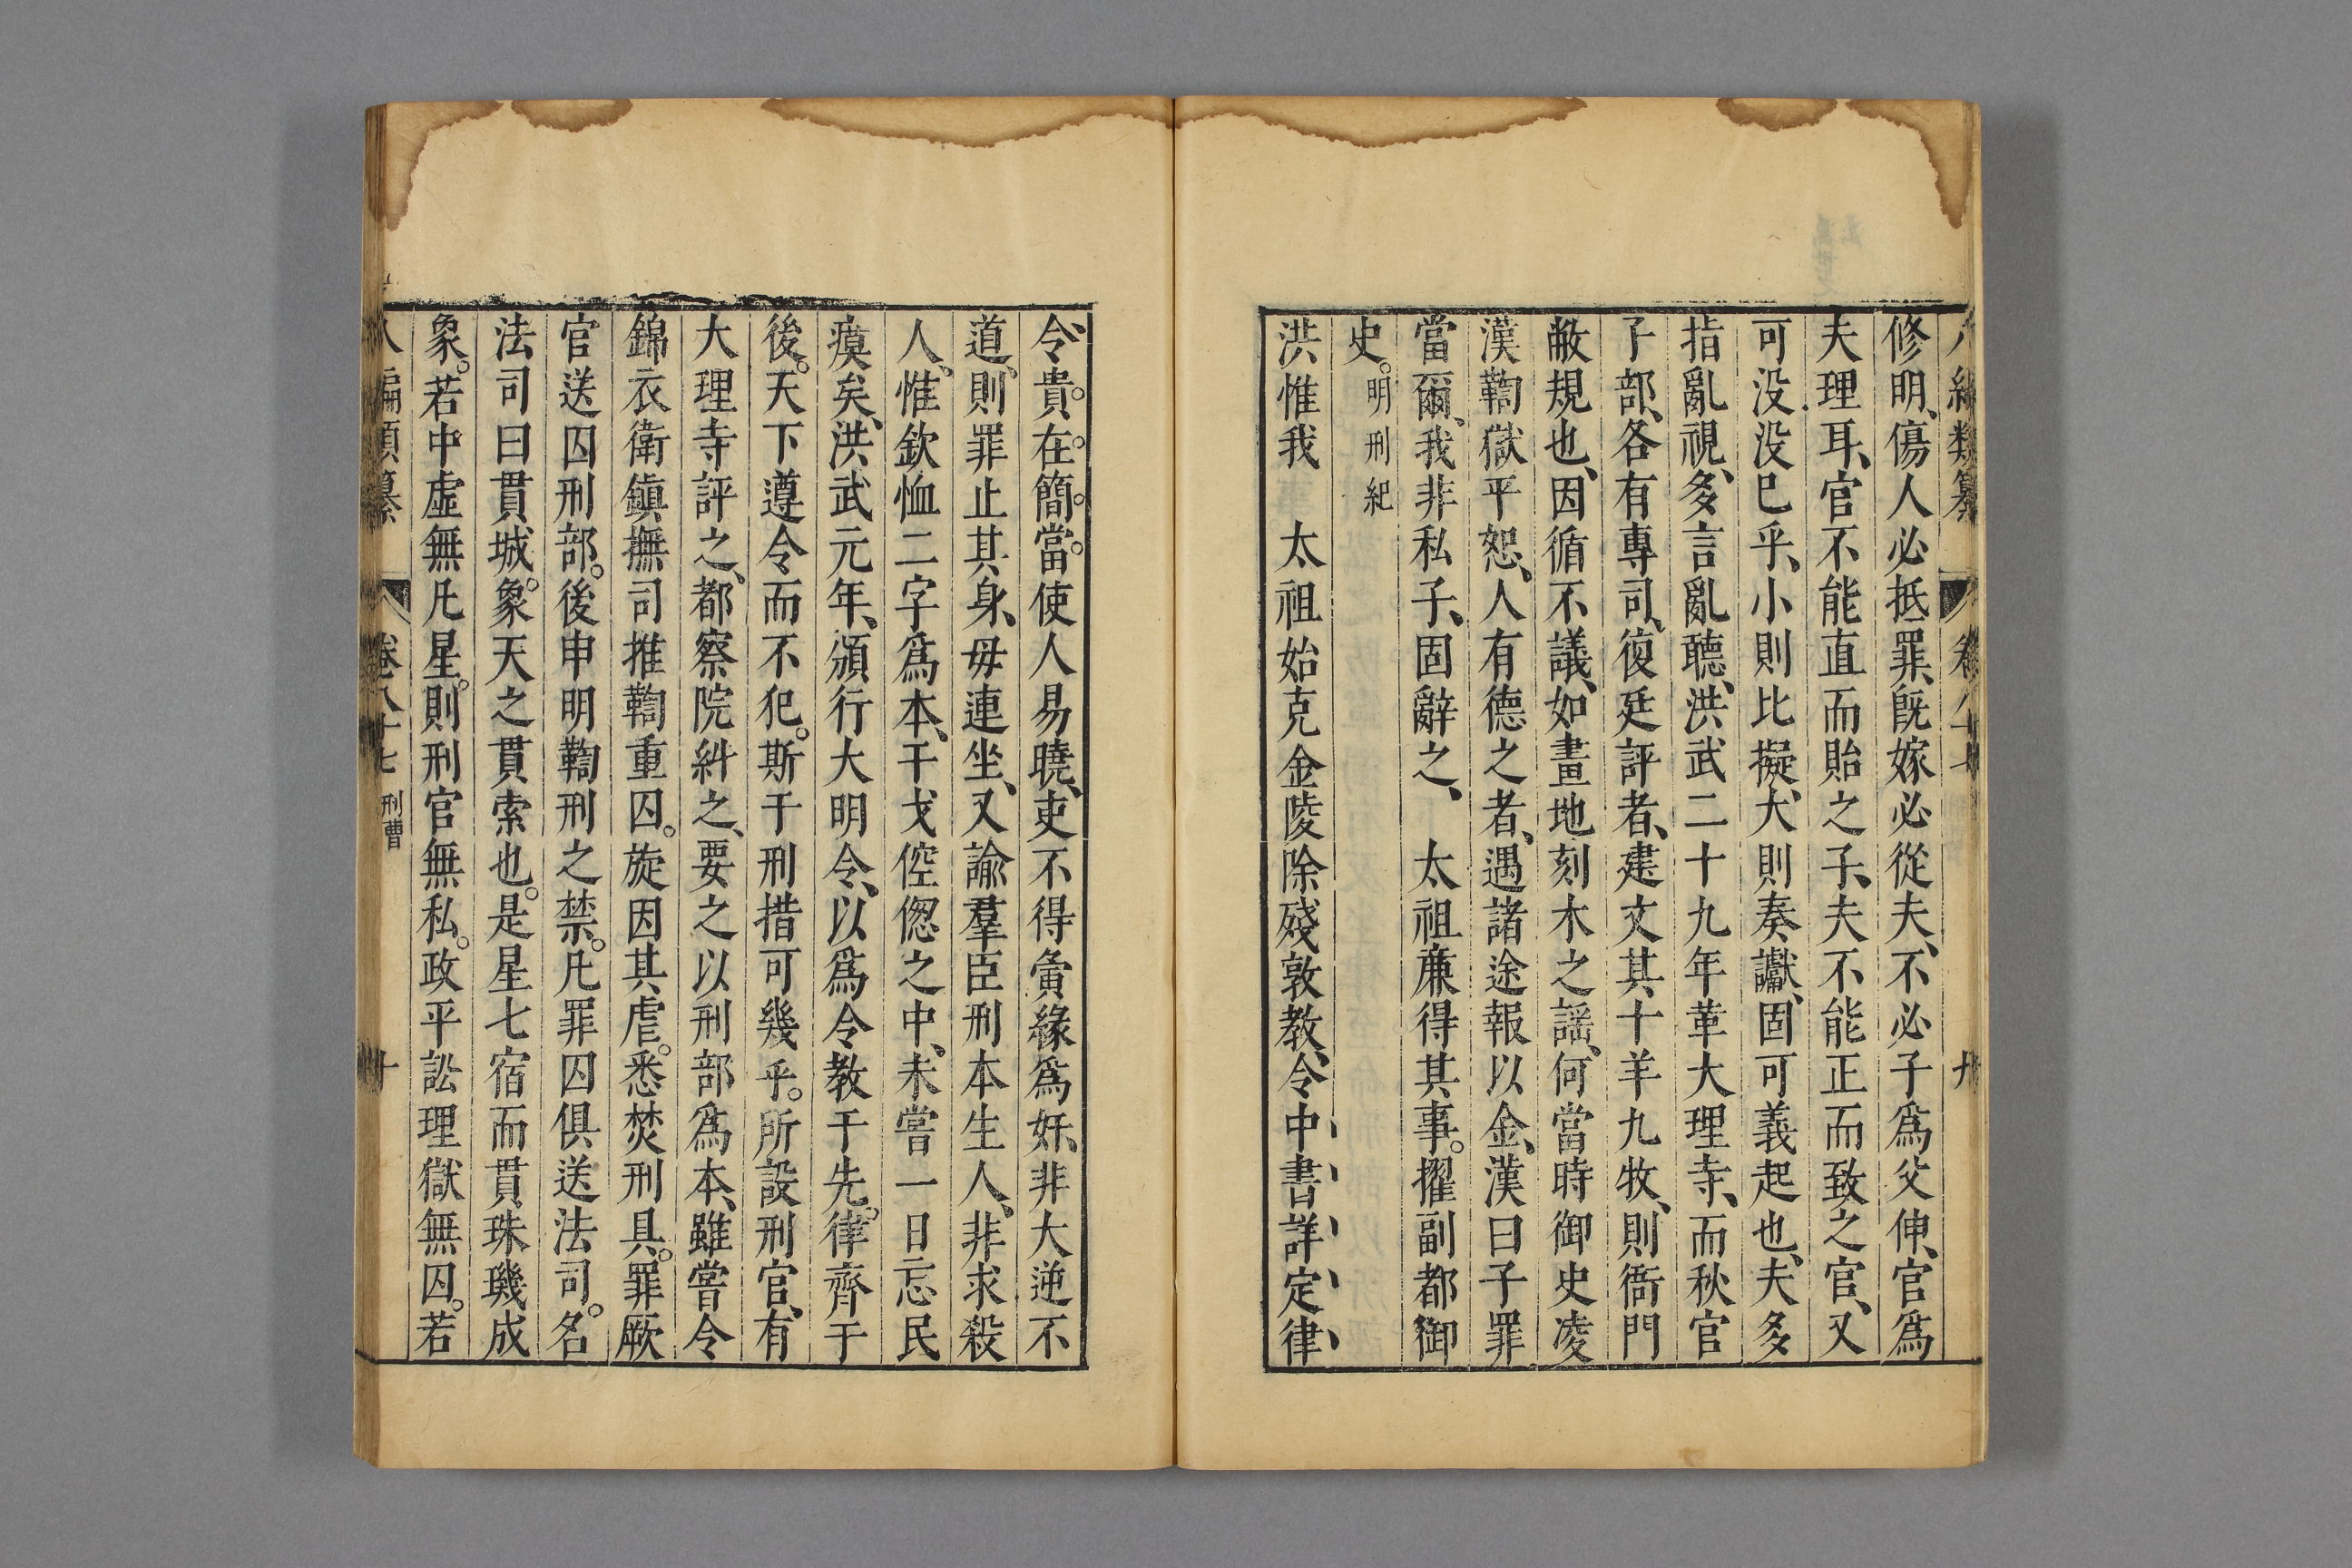 修明、傷人必抵罪、旣嫁必從夫、不必子爲父伸、官爲
夫理耳、官不能直而貽之子、夫不能正而致之官、又
可没没巳乎、小則比擬、大則奏讞、固可義起也、夫多
指亂視、多言亂聽、洪武二十九年革大理寺、而秋官
子部、各有專司、復廷評者、建文其十羊九牧、則衙門
敝規也、因循不議、如畫地刻木之謡、何當時御史凌
漢鞫獄平恕、人有德之者、遇諸途報以金、漢曰子罪
當爾、我非私子、固辭之、 太祖亷得其事。擢副都御
史。明刑紀
洪惟我 太祖始克金陵除殘敦教、令中書詳定律
令、貴。在。簡。當。使人易曉、吏不得夤緣爲奸、非大逆不
道、則罪止其身、毋連坐、又諭羣臣刑本生人、非求殺
人、惟欽恤二字爲本、干戈倥偬之中、未嘗一日忘民
瘼矣、洪武元年、頒行大明令、以爲令教于先。律齊于
後。天下遵令而不犯。斯于刑措可幾乎。所設刑官、有
大理寺評之、都察院糾之、要之以刑部爲本、雖嘗令
錦衣衛鎭撫司推鞫重囚。旋因其虐。悉焚刑具。罪厥
官送囚刑部。後申明鞫刑之禁。凡罪囚俱送法司。名
法司曰貫城。象天之貫索也。是星七宿而貫珠璣成
象。若中虛無凡星。則刑官無私。政平訟理獄無囚。若
類纂 卷八十七 刑曹 十